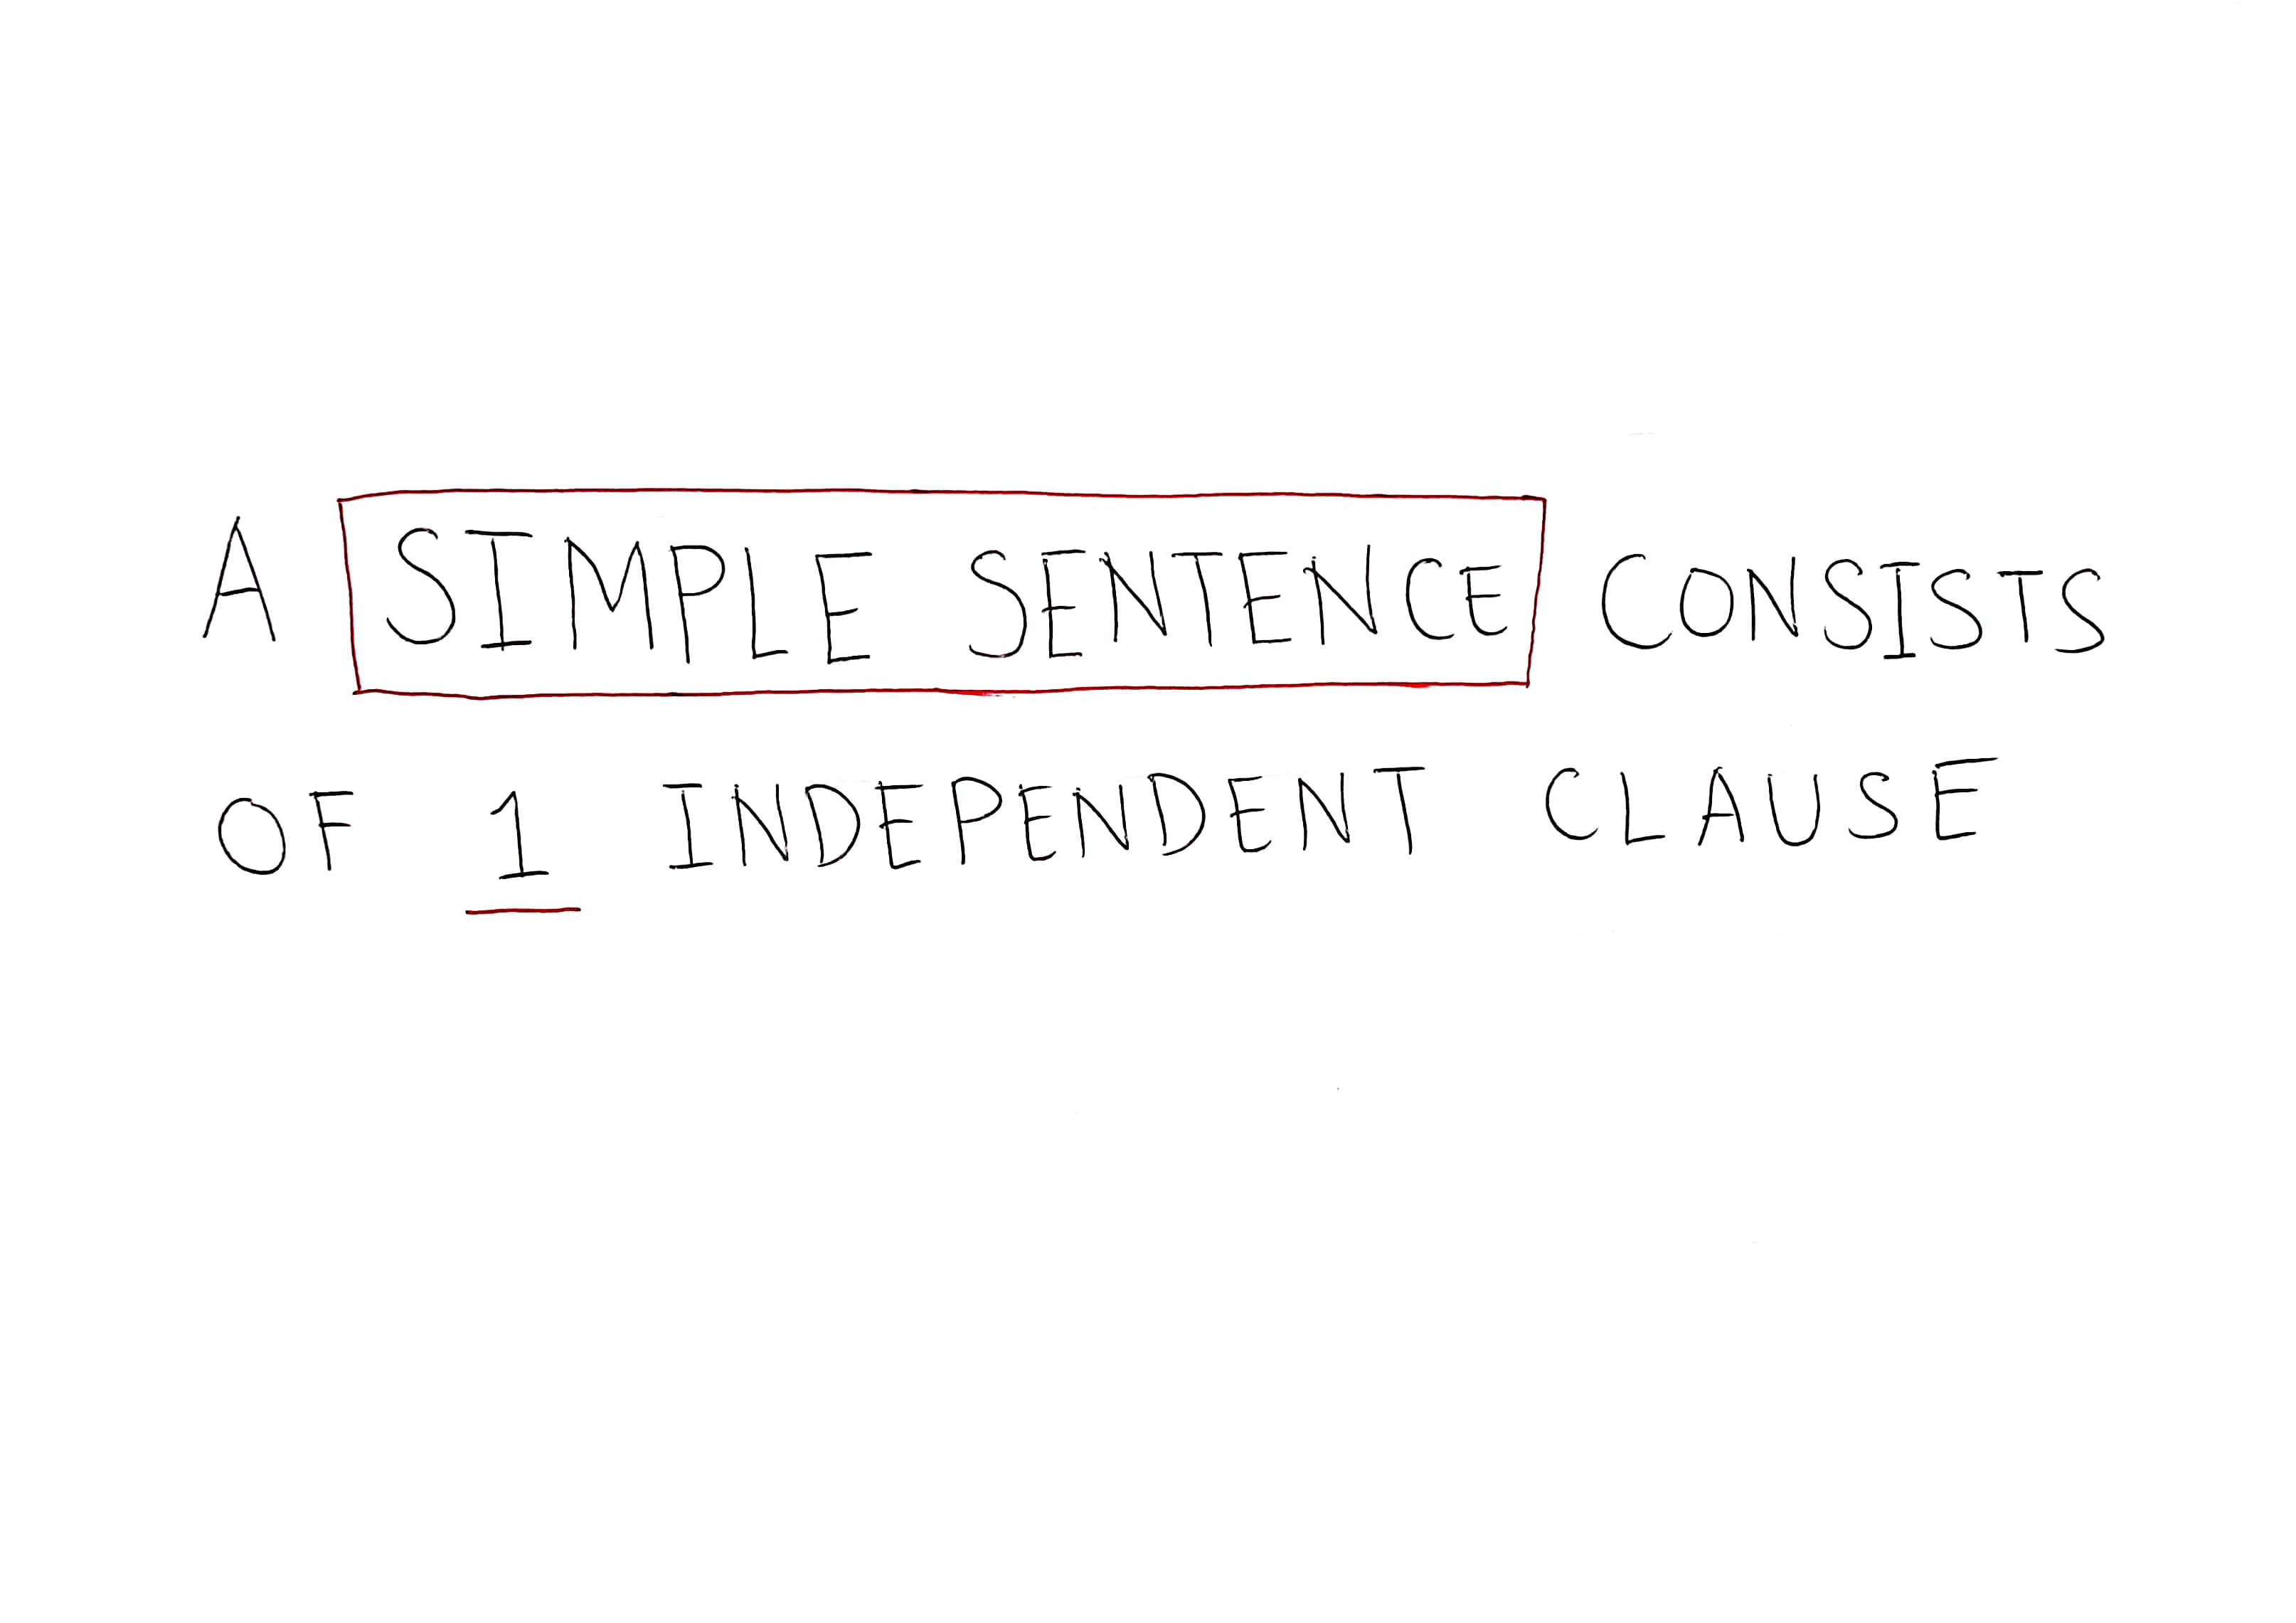 A SIMPLE SENTENCE CONSISTS
OF 1 INDEPENDENT CLAUSE